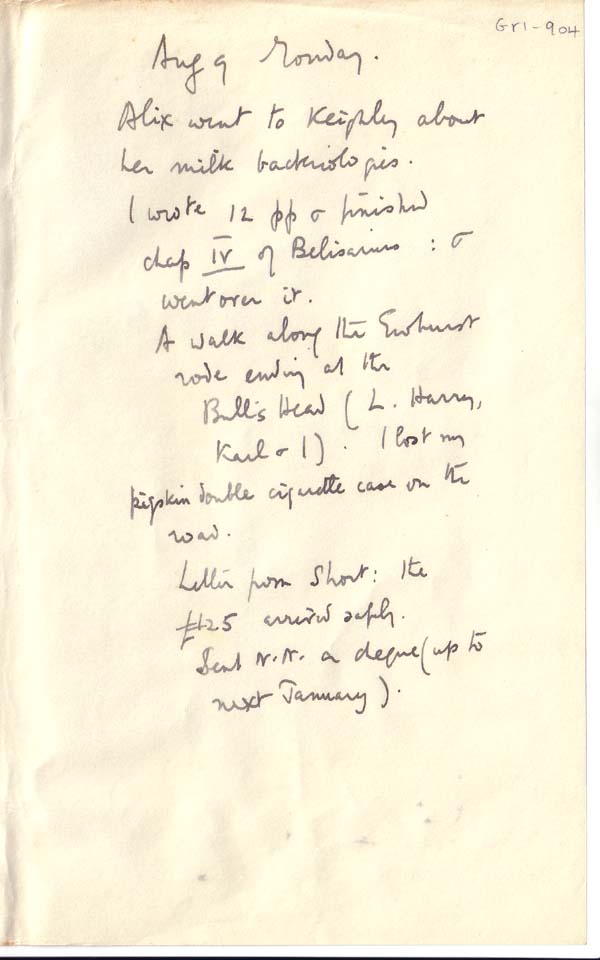 Gr1-904
Aug 9 Monday.
Alix went to Keighley about
her milk bacteriologies.
I wrote 12 pp & finished
chap IV of Belisarius : &
went over it.
A walk along the Ewhurst
rode ending at the
Bull's Head (L. Harry,
Karl & I). I lost my
pigskin double cigarette case on the
road.
Letter from Short: the
£125 arrived safely.
Sent N.N. a cheque (up to
next January).